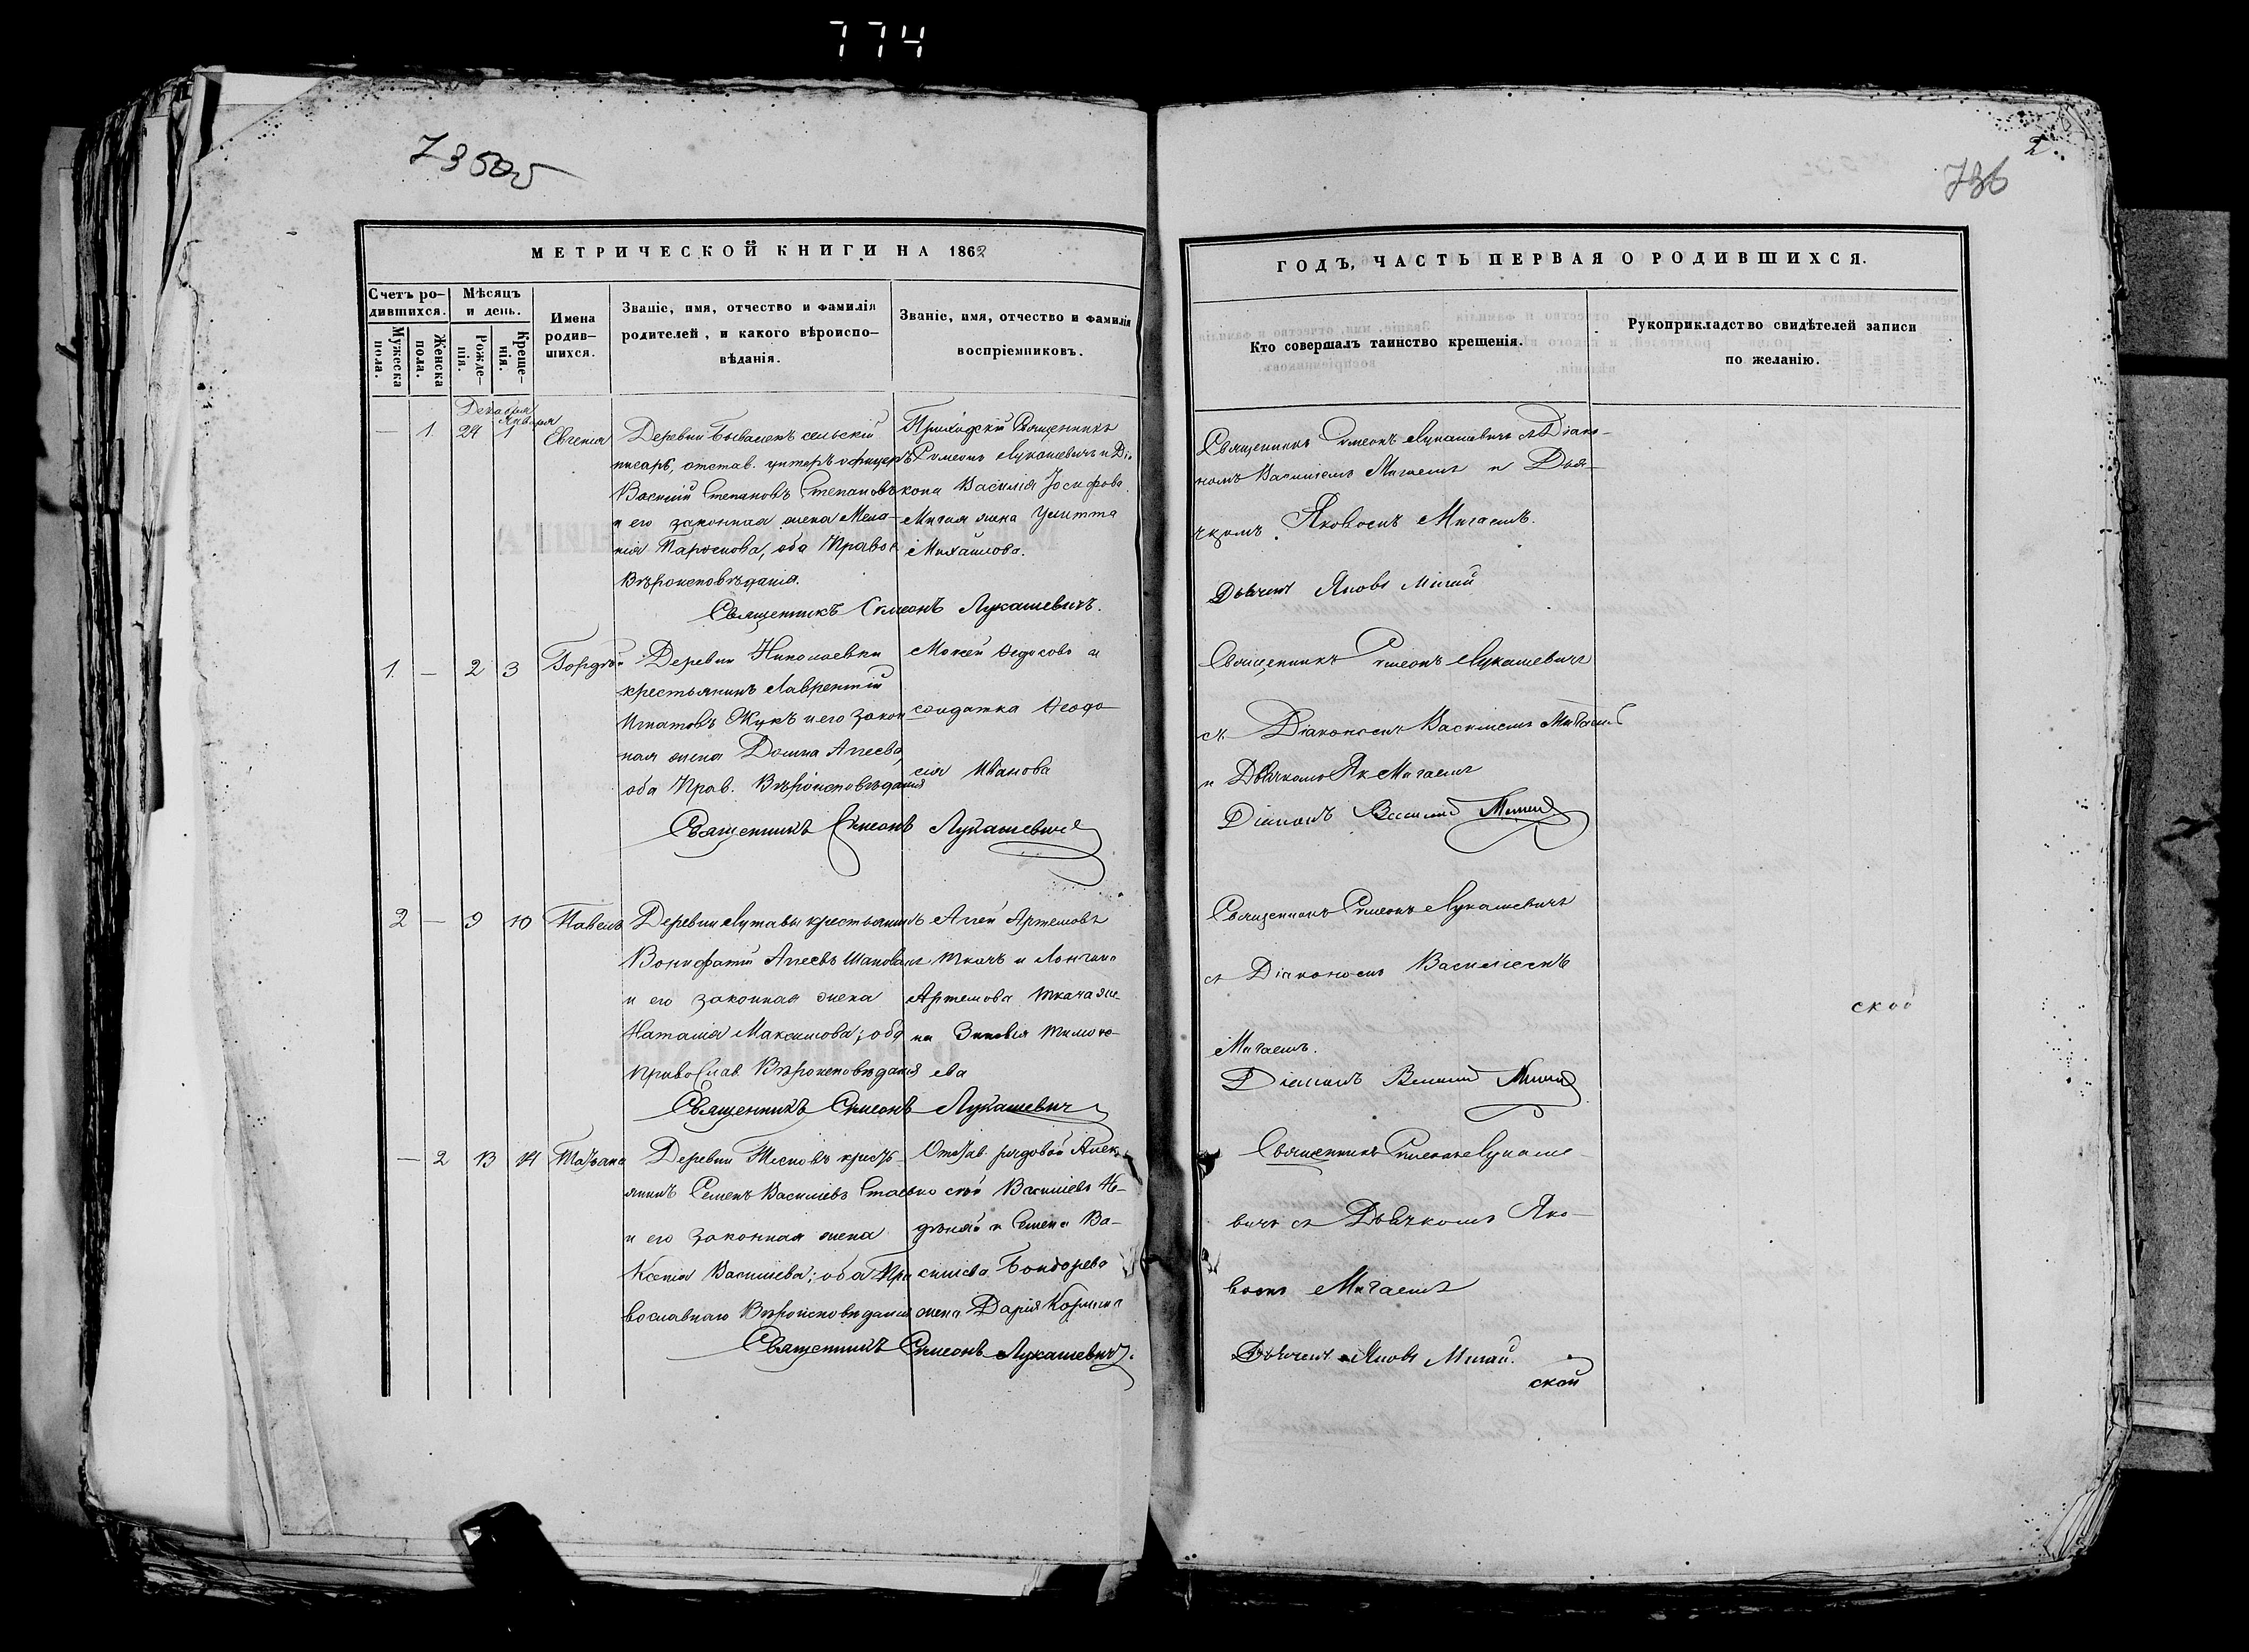 774
736
2.
МЕТРИЧЕСКОЙ КНИГИ НА 1862
ГОДЪ, ЧАСТЬ ПЕРВАЯ О РОДИВШИХСЯ.
Счетъ ро-
дившихся.
Мужеска
пола.
Женска
пола.
Мѣсяцъ
и день.
Рожде-
нія.
Креще-
нія.
Имена
родив-
шихся.
Званіе, имя, отчество и фамилія
родителей, и какого вѣроиспо-
вѣданія.
Званіе, имя, отчество и фамилія
воспріемниковъ.
Кто совершалъ таинство крещенія.
Рукоприкладство свидѣтелей записи
по желанію.
Декабря
Января
— 1. 24 1 Евгенія
Деревни сельскій
писарь, отстав. унтеръ офицеръ
Василій Степановъ Степановъ
и его законная жена Мела-
нія оба Правос
Вѣроисповѣданія.
Приходскій Священникъ
Симеонъ Лукашевичъ и Ді-
кона Василія Іосифова
жена Улитта
Михайлова.
Священникъ Симеонъ Лукашевичъ.
Священникъ Симеонъ Лукашевичъ съ Діако-
номъ Василіемъ Мигаемъ и Дья-
чкомъ Яковомъ Мигаемъ.
Дьячекъ Яковъ Мигай
1. — 2 3 Гордѣй
Деревни Николаевки
крестьянинъ Лаврентій
Игнатовъ Жукъ и его закон
ная жена Домна Агеева,
оба Прав. Вѣроисповѣданія
Мокей Федосовъ и
солдатка Феодо-
сія Иванова
Священникъ Симеонъ Лукашевичъ
Священникъ Симеонъ Лукашевичъ
съ Діакономъ Василіемъ Мигаемъ
и Дьячкомъ Як Мигаемъ
Діаконъ Василій Мигай
2 — 9 10 Павелъ
Деревни Лутавы крестьянинъ
Вонифатій Агеевъ
и его законная жена
Наталія Максимова; оба
Православ. Вѣроисповѣданія
Агей Артемовъ
Ткачъ и Лонгина
Артемова Ткача же-
на Зиновія Тимофе-
ева
Священникъ Симеонъ Лукашевичъ
Священникъ Симеонъ Лукашевичъ
съ Діакономъ Василіемъ
Мигаемъ.
Діаконъ Василій Мигай
ской
— 2 13 14 Татьяна
Деревни кресть-
янинъ Семенъ Василіевъ
и его законная жена
Ксенія Василіева; оба Пра
вославнаго Вѣроисповѣданія
Отстав. рядовой Алек-
сѣй Василіевъ
и Семена Ва-
силіева Бондарева
жена Дарія
Священникъ Симеонъ Лукашевичъ.
Священникъ Симеонъ Лукаше-
вичъ съ Дьячкомъ Яко-
вомъ Мигаемъ
Дьячекъ Яковъ Мигай.
ской